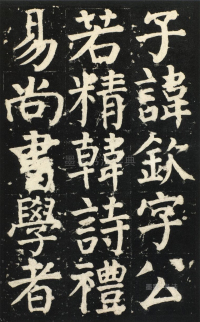 子諱欽字公
若精韓詩禮
易尚書學者